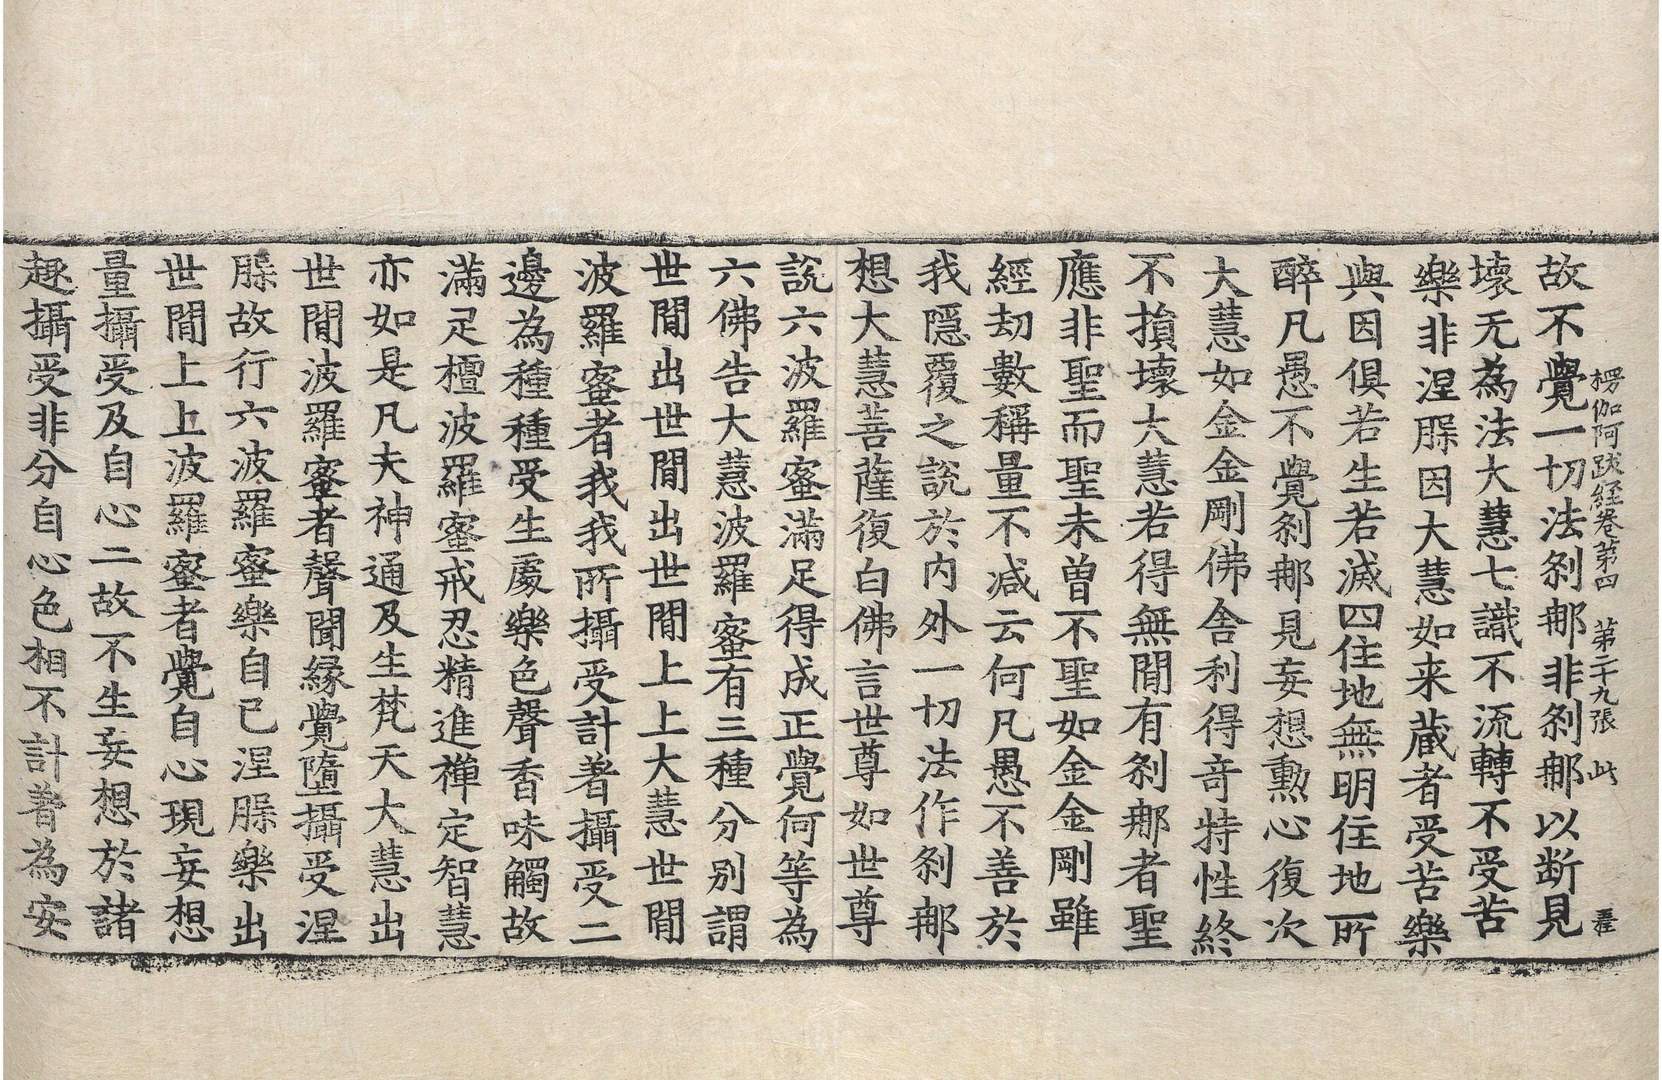 故不覺一切法剎那非剎那以断見
楞伽阿跋経卷第四　第二十九張　此
壞无為法大慧七識不流轉不受苦
樂非涅脲因大慧如来蔵者受苦樂
與因俱若生若滅四住地無明住地所
醉凡愚不覺剎那見妄想勲心復次
大慧如金金剛佛舍利得竒特性終
不損壞大慧若得無間有剎那者聖
應非聖而聖未曽不聖如金金剛雖
經劫數稱量不减云何凡愚不善於
我隱覆之說於内外一切法作剎那
想大慧菩薩復白佛言世尊如世尊
說六波羅蜜滿足得成正覺何等為
六佛告大慧波羅蜜有三種分別謂
世間出世間出世間上上大慧世間
波羅蜜者我我所攝受計著攝受二
邊為種種受生處樂色聲香味觸故
滿足檀波羅蜜戒忍精進禅定智慧
亦如是凡夫神通及生梵天大慧出
世間波羅蜜者聲聞縁覺墮攝受涅
脲故行六波羅蜜樂自己涅脲樂出
世間上上波羅蜜者覺自心現妄想
量攝受及自心二故不生妄想於諸
趣攝受非分自心色相不計著為安